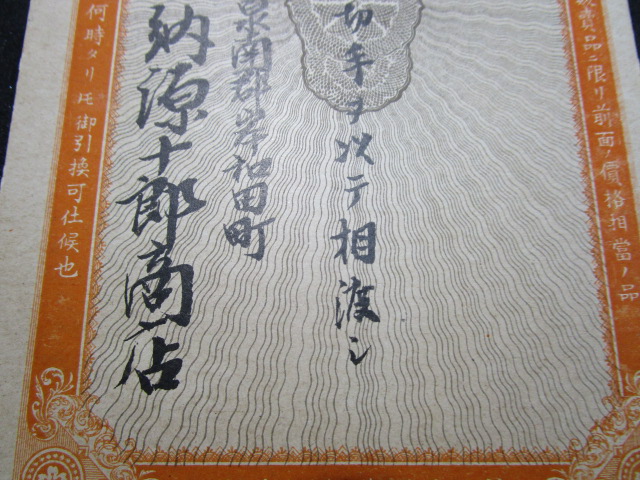 賣品ニ限リ前面ノ價格相當ノ品
切手ヲ以テ相渡シ
泉南郡岸和田町
納源十郎商店
何時タリ𪜈御引換可仕候也